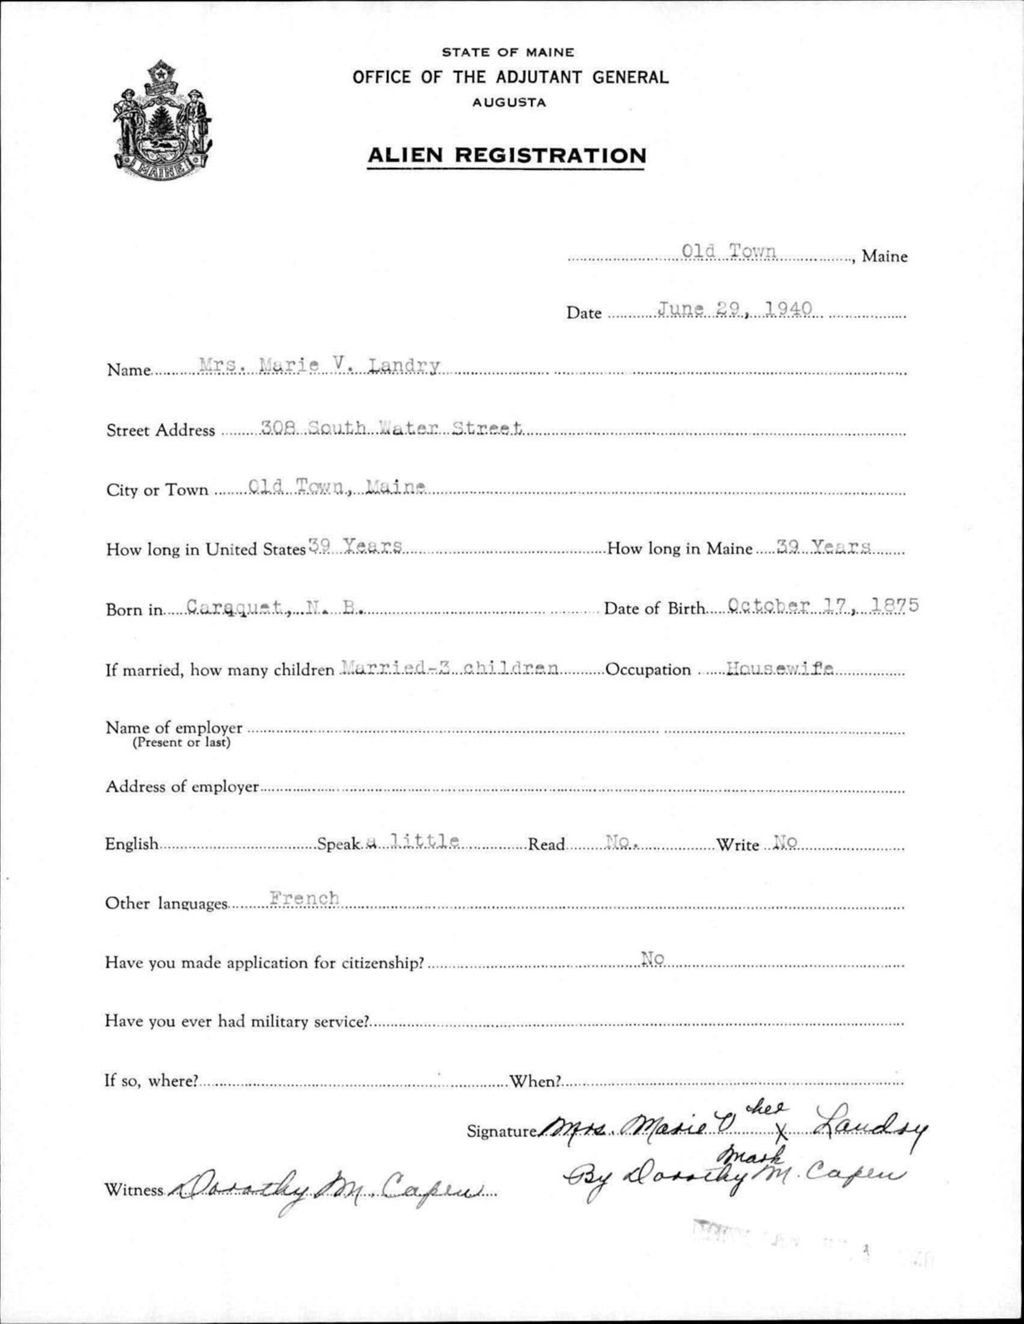 STATE OF MAINE
OFFICE OF THE ADJUTANT GENERAL
AUGUSTA
ALIEN REGISTRATION
MAINE
Old Town, Maine
Date June 29, 1940
Name Mrs. Marie V. Landry
Street Address 308 South Water Street
City or Town Old Town, Maine
How long in United States 39 Years How long in Maine 39 Years
Born in Caraquet, N. B. Date of Birth October 17, 1875
If married, how many children Married-3 children Occupation Housewife
Name of employer
(Present or last)
Address of employer
English Speak a little Read No. Write No
Other languages French
Have you made application for citizenship? No
Have you ever had military service?
If so, where? When?
her
Signature Mrs. Marie V X Landry
mark
By Dorothy M. Capen
Witness Dorothy M. Capen